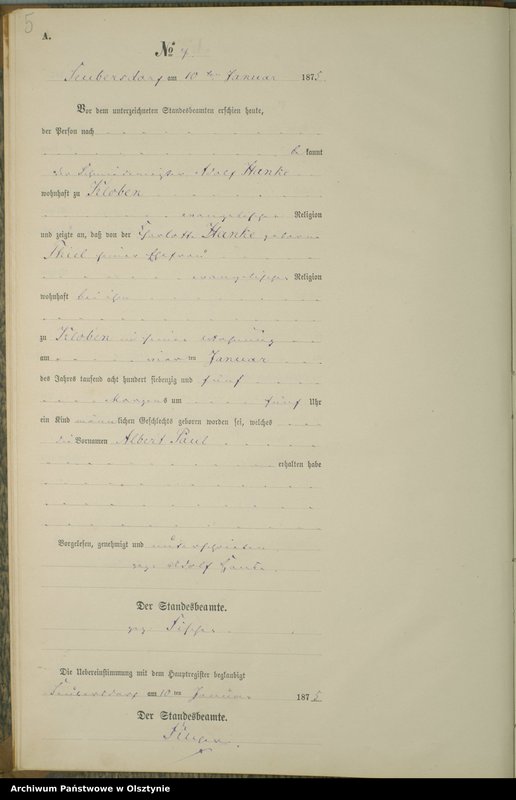 5
A.
№
Seubersdorf am 10 ten Januar 1875.
Vor dem unterzeichneten Standesbeamten erschien heute,
der Person nach
be kannt
der Adolf Hanke
wohnhaft zu Kloben
evangelischer Religion
und zeigte an, daß von der Charlotte Hanke geborene
Thiel seiner Ehefrau
evangelischer Religion
wohnhaft bei ihm
zu Kloben in seiner Wohnung
am vier ten Januar
des Jahres tausend acht hundert siebenzig und fünf
Morgens um fünf Uhr
ein Kind männlichen Geschlechts geboren worden sei, welches
die Vornamen Albert Paul
erhalten habe
Vorgelesen, genehmigt und unterschrieben
gez. Adolf Hanke.
Der Standesbeamte.
gez.
Die Uebereinstimmung mit dem Hauptregister beglaubigt
Seubersdorf am 10 ten Januar 1875
Der Standesbeamte.
Archiwum Państwowe w Olsztynie